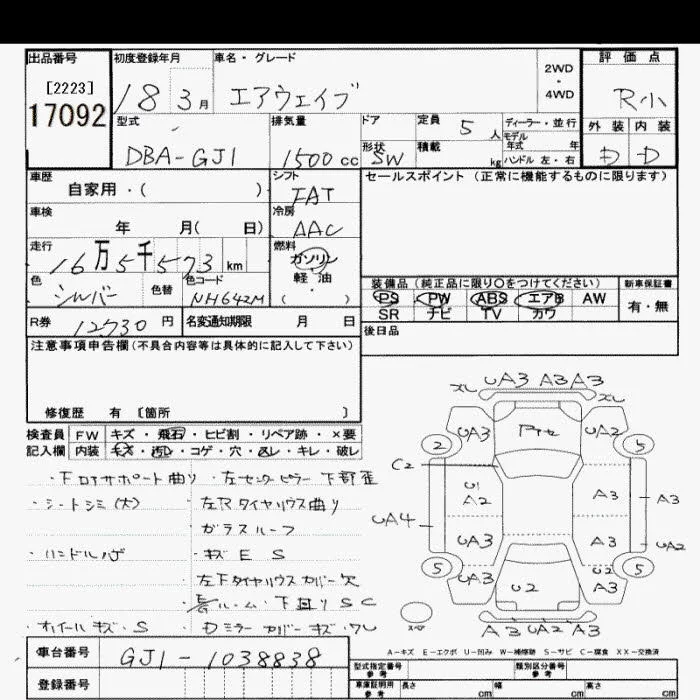 出品番号 初度登録年月 車名・グレード 2WD・4WD 評価点
[2223]
17092
18 3月 エアウェイブ R小
型式 排気量 ドア 定員 5人 ディーラー・並行 外装 内装
DBA-GJ1 1500cc 形状 SW 積載 kg モデル年式 年 ハンドル 左・右 D D
車歴 自家用・( ) シフト FAT セールスポイント (正常に機能するものに限ります)
車検 年 月( 日) 冷房 AAC
走行 16万5千573km 燃料 ガソリン・軽油・( )
色 シルバー 色替 色コード NH642M
装備品 (純正品に限り○をつけてください) 新車保証書
PS PW ABS エアB AW 有・無
SR ナビ TV カワ
R券 12730円 名変通知期限 月 日 後日品
注意事項申告欄 (不具合内容等は具体的に記入して下さい)
修復歴 有 [箇所 ]
検査員記入欄 FW キズ・飛石・ヒビ割・リペア跡・×要
内装 キズ・汚レ・コゲ・穴・スレ・キレ・破レ
・下回サポート曲り ・左センターピラー下部歪
・シートシミ(大) 左Rタイヤハウス曲り
ガラスルーフ
・ハンドルハゲ ・キズ E S
・左下タイヤハウスカバー欠
下廻り SC
・ホイールキズ・S ・Dミラーカバーキズ・ワレ
XL UA3 A3 A3 XL
2 UA3 UA2 5
C2
U1
A2 A3 A3
UA4
UA3 A3 UA2
5 UA3 U2 U2 A3 5
A3 UA2 A3
A-キズ E-エクボ U-凹み W-補修跡 S-サビ C-腐食 XX-交換済
車台番号 GJ1-1038838
登録番号
型式指定番号 参考 類別区分番号 参考
車庫証明用 参考 長さ cm 幅 cm 高さ cm